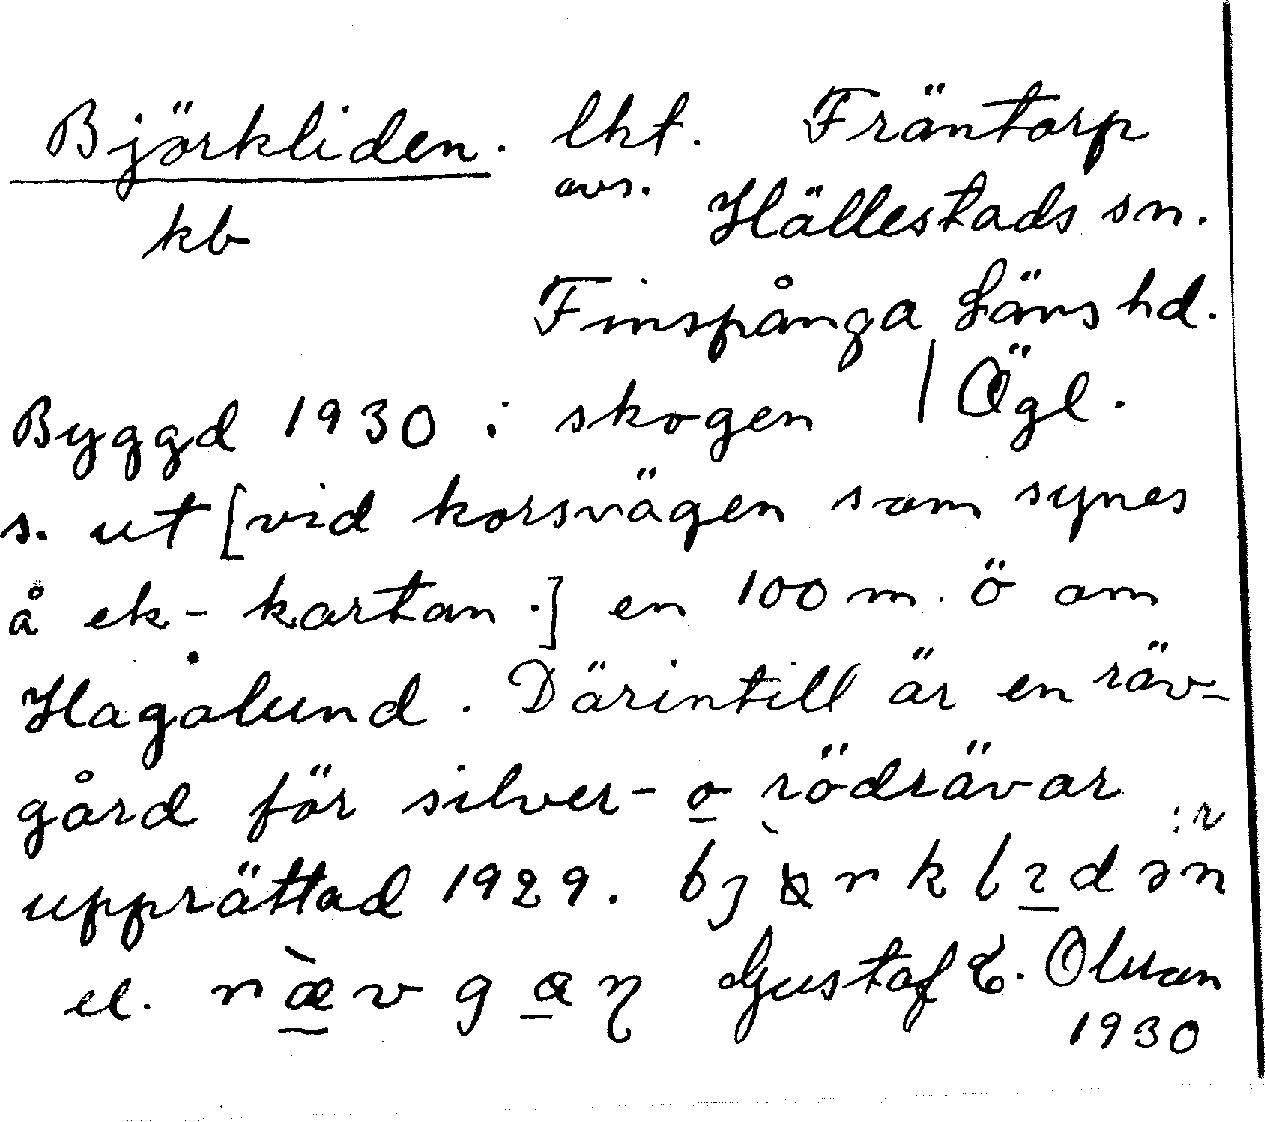 Björkliden. lht. Fräntorp
kb avs. Hällestads sn.
Finspånga Läns hd.
Byggd 1930 i skogen / Ögl.
s. ut [vid korsvägen som synes
å ek-kartan.] en 100 m. ö om
Hagalund. Därintill är en räv-
gård för silver- o rödrävar
upprättad 1929.
el. Gustaf E. Olsson
1930